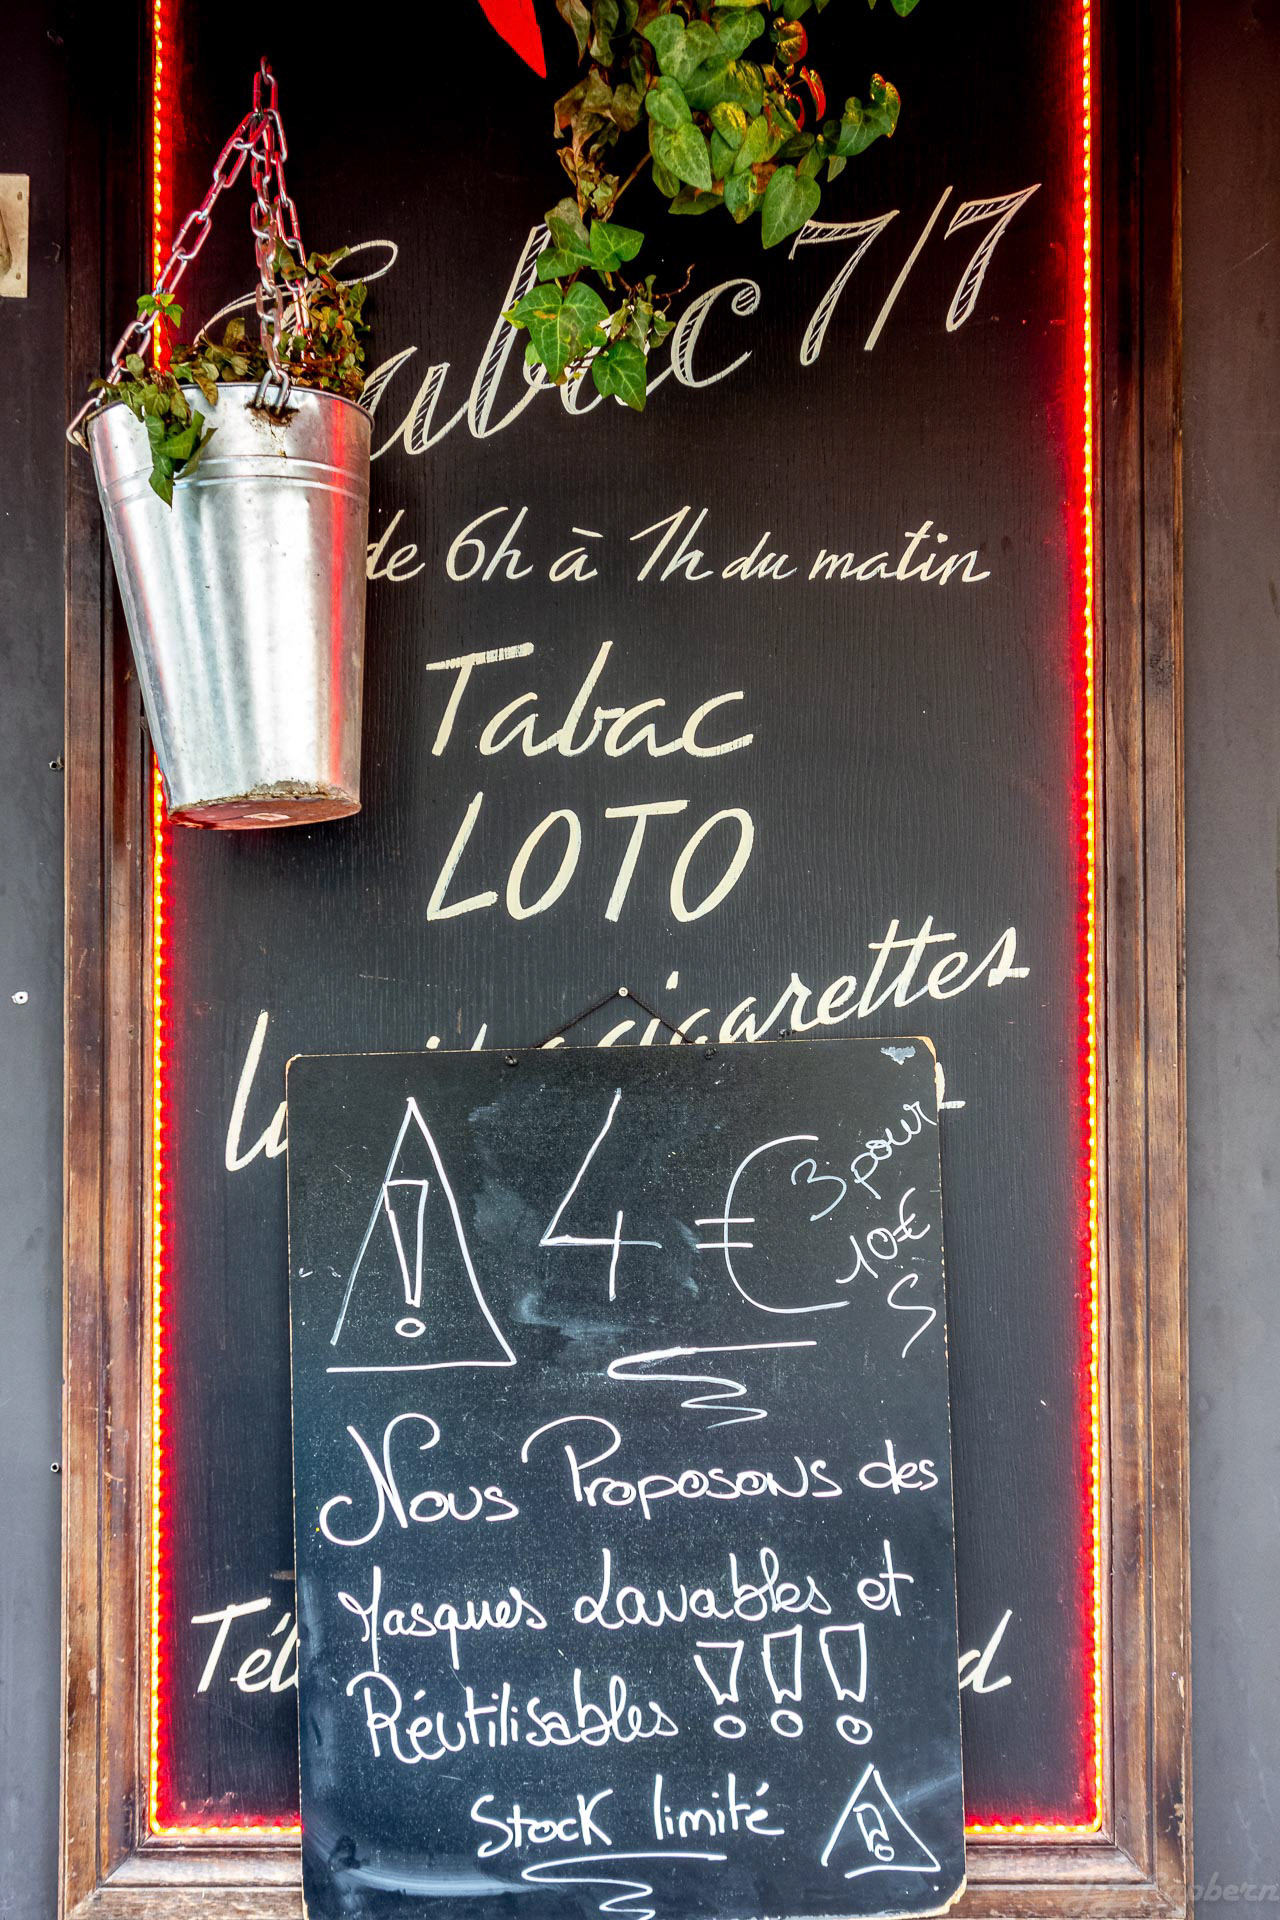 7/7
de 6h à 1h du matin
Tabac
LOTO
cigarettes
4€
3 pour
10€
Nous Proposons des
Masques Lavables et
Réutilisables !!!
Stock limité